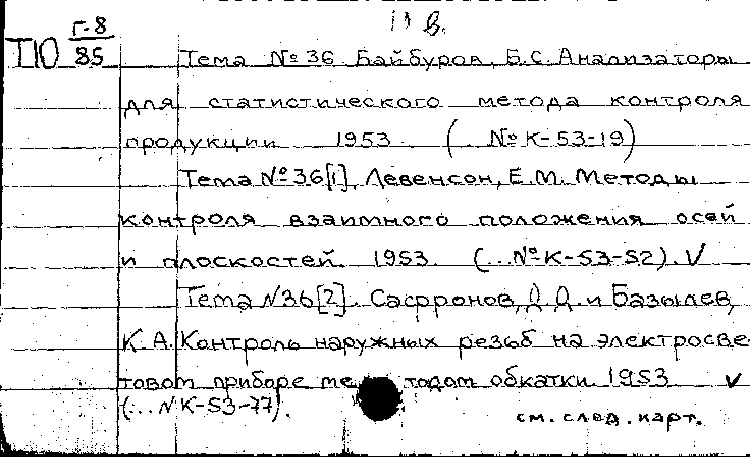 П10 Г-8/85 11 в.
Тема № 36 Байбуров, Б.С. Анализаторы
для статистического метода контроля
продукции 1953. ( № К-53-19)
Тема № 36[1], Левенсон, Е.М. Методы
контроля взаимного положения осей
и плоскостей. 1953. (...№ К-53-52). V
Тема N36[2]. Сафронов, Д.Д. и Базылев,
К.А. Контроль наружных резьб на электросве-
товом приборе методом обкатки. 1953 V
(...N К-53-77).
см. след. карт.